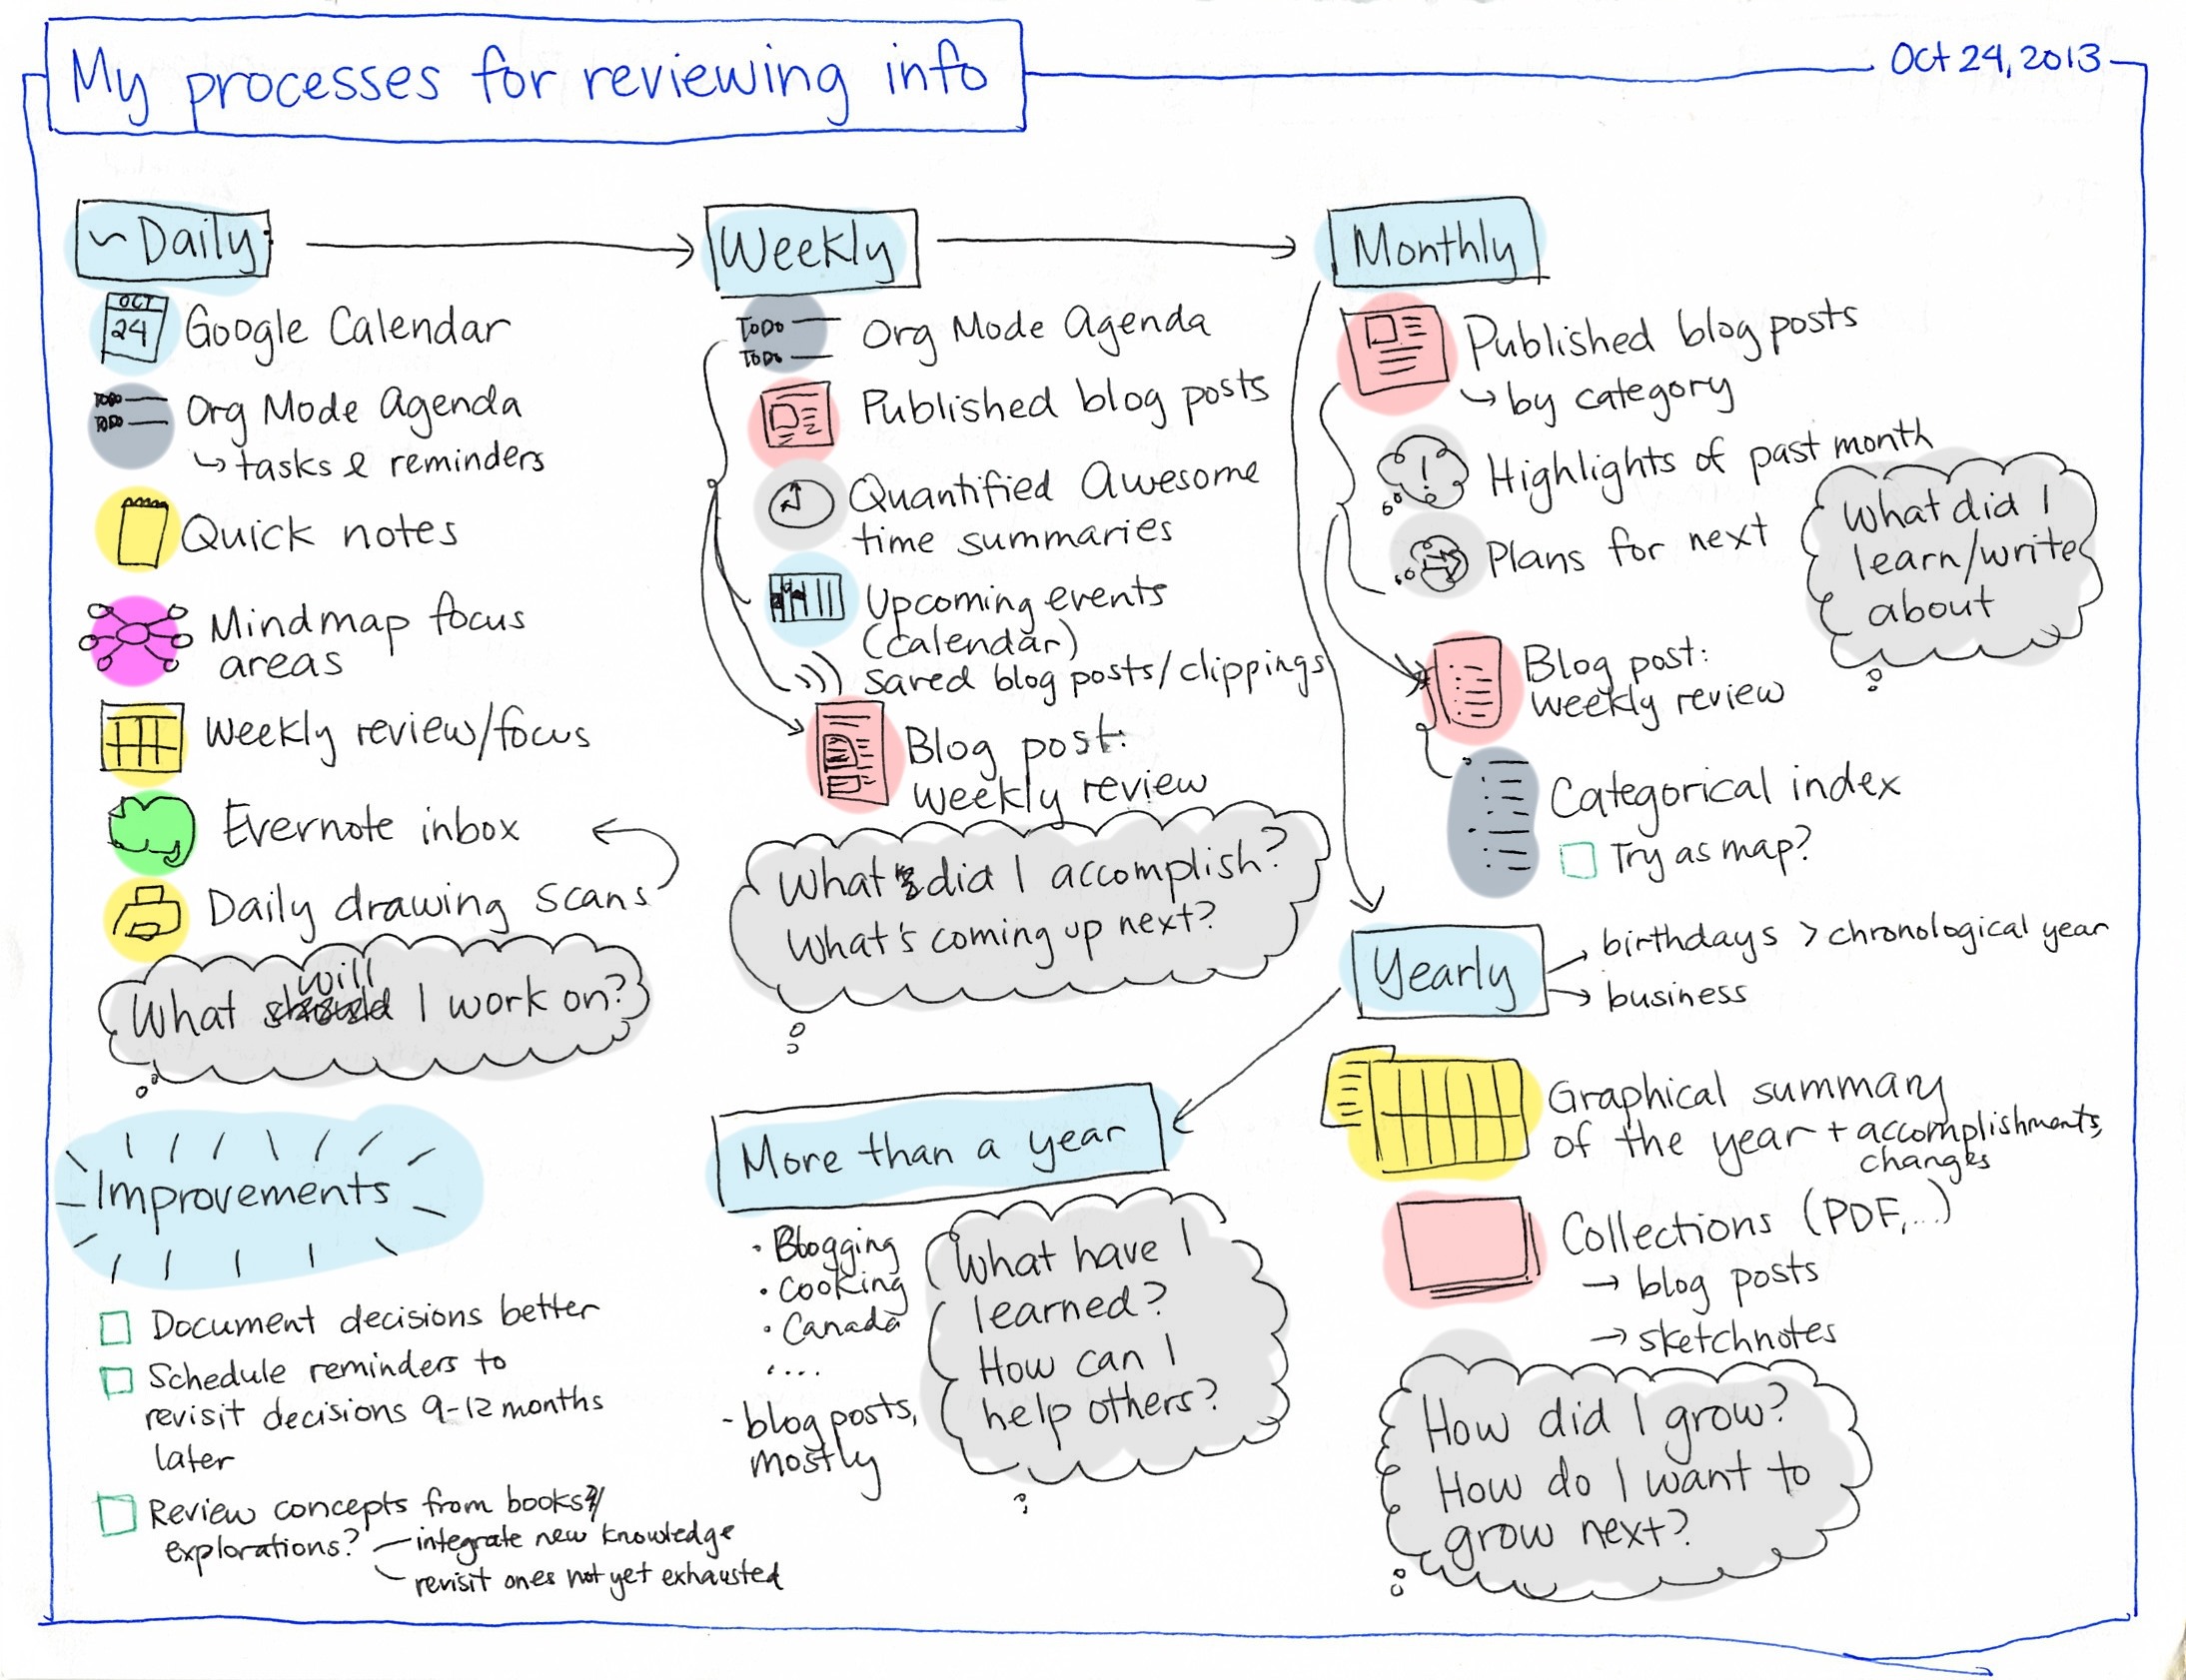 My processes for reviewing info
Oct 24, 2013
~Daily
OCT
24
Google Calendar
TODO
TODO
Org Mode Agenda
↳ tasks & reminders
Quick notes
Mindmap focus
areas
Weekly review/focus
Evernote inbox
Daily drawing scans
will
What should I work on?
Improvements
Document decisions better
Schedule reminders to
revisit decisions 9-12 months
later
Review concepts from books?/
explorations?
integrate new knowledge
revisit ones not yet exhausted
Weekly
TODO
TODO
Org Mode Agenda
Published blog posts
Quantified Awesome
time summaries
Upcoming events
(calendar)
Saved blog posts/clippings
Blog post:
weekly review
What did I accomplish?
What's coming up next?
More than a year
· Blogging
· Cooking
· Canada
· ...
- blog posts,
mostly
What have I
learned?
How can I
help others?
Monthly
Published blog posts
↳ by category
Highlights of past month
Plans for next
What did I
learn/write
about
Blog post:
weekly review
Categorical index
Try as map?
Yearly
→ birthdays > chronological year
→ business
Graphical summary
of the year + accomplishments,
changes
Collections (PDF,...)
→ blog posts
→ sketchnotes
How did I grow?
How do I want to
grow next?